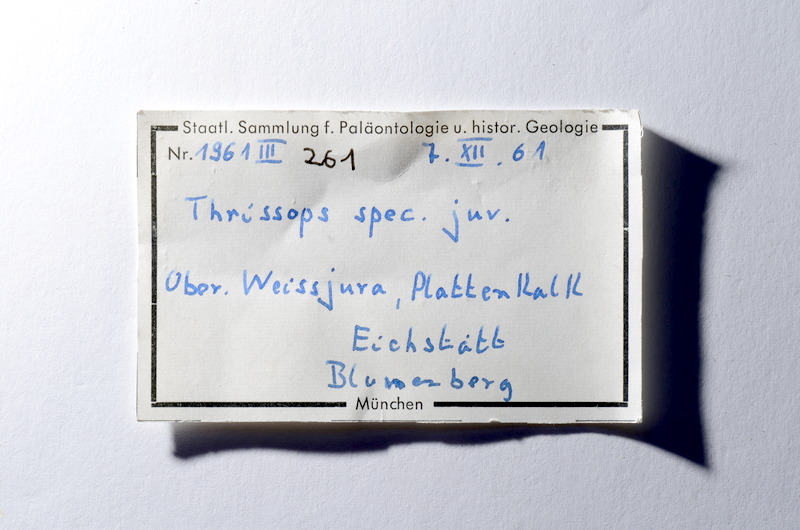 Staatl. Sammlung f. Paläontologie u. histor. Geologie
Nr. 1961 III 261 7. XII. 61
Thrissops spec. juv.
Ober. Weissjura, Plattenkalk
Eichstätt
Blumenberg
München